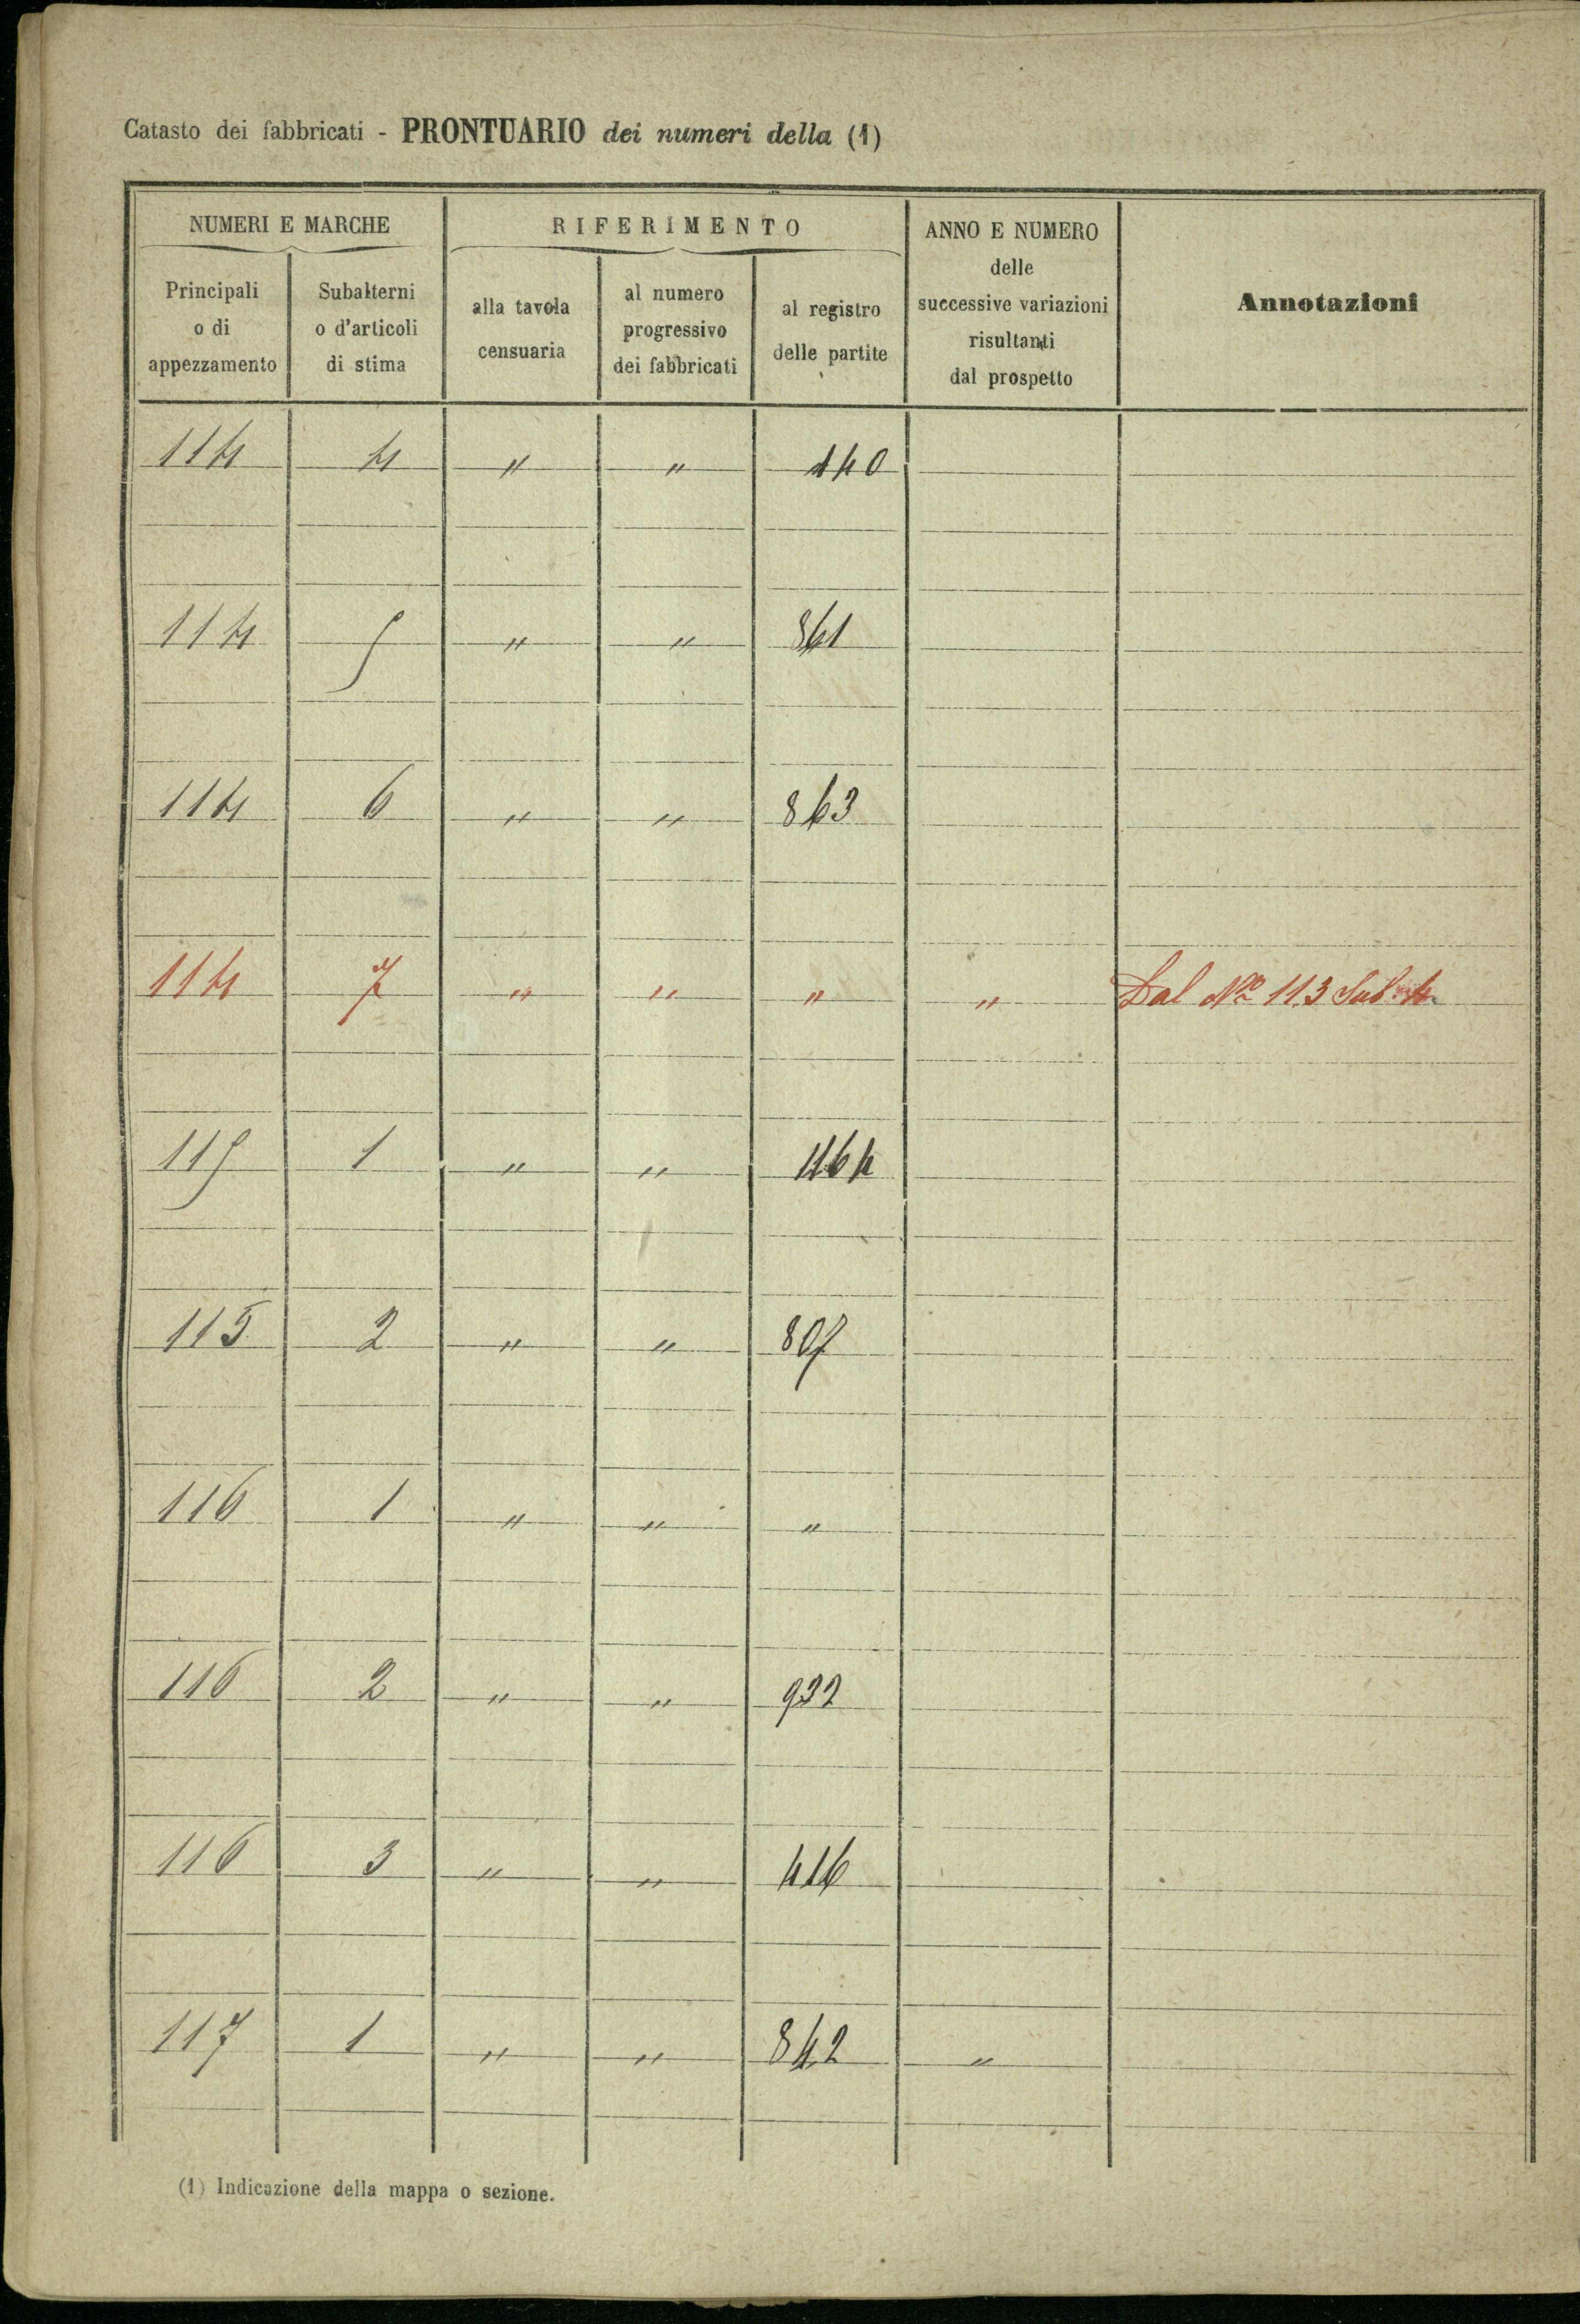 Catasto dei fabbricati - PRONTUARIO dei numeri della (1)
NUMERI E MARCHE
RIFERIMENTO
ANNO E NUMERO
delle
successive variazioni
risultanti
dal prospetto
Annotazioni
Principali
o di
appezzamento
Subalterni
o d'articoli
di stima
alla tavola
censuaria
al numero
progressivo
dei fabbricati
al registro
delle partite
114 4 " " 140
114 5 " " 861
114 6 " " 863
114 7 " " " " Dal No 113 Sub. 4.
115 1 " " 1164
115 2 " " 807
116 1 " " "
116 2 " " 932
116 3 " " 416
117 1 " " 842 "
(1) Indicazione della mappa o sezione.